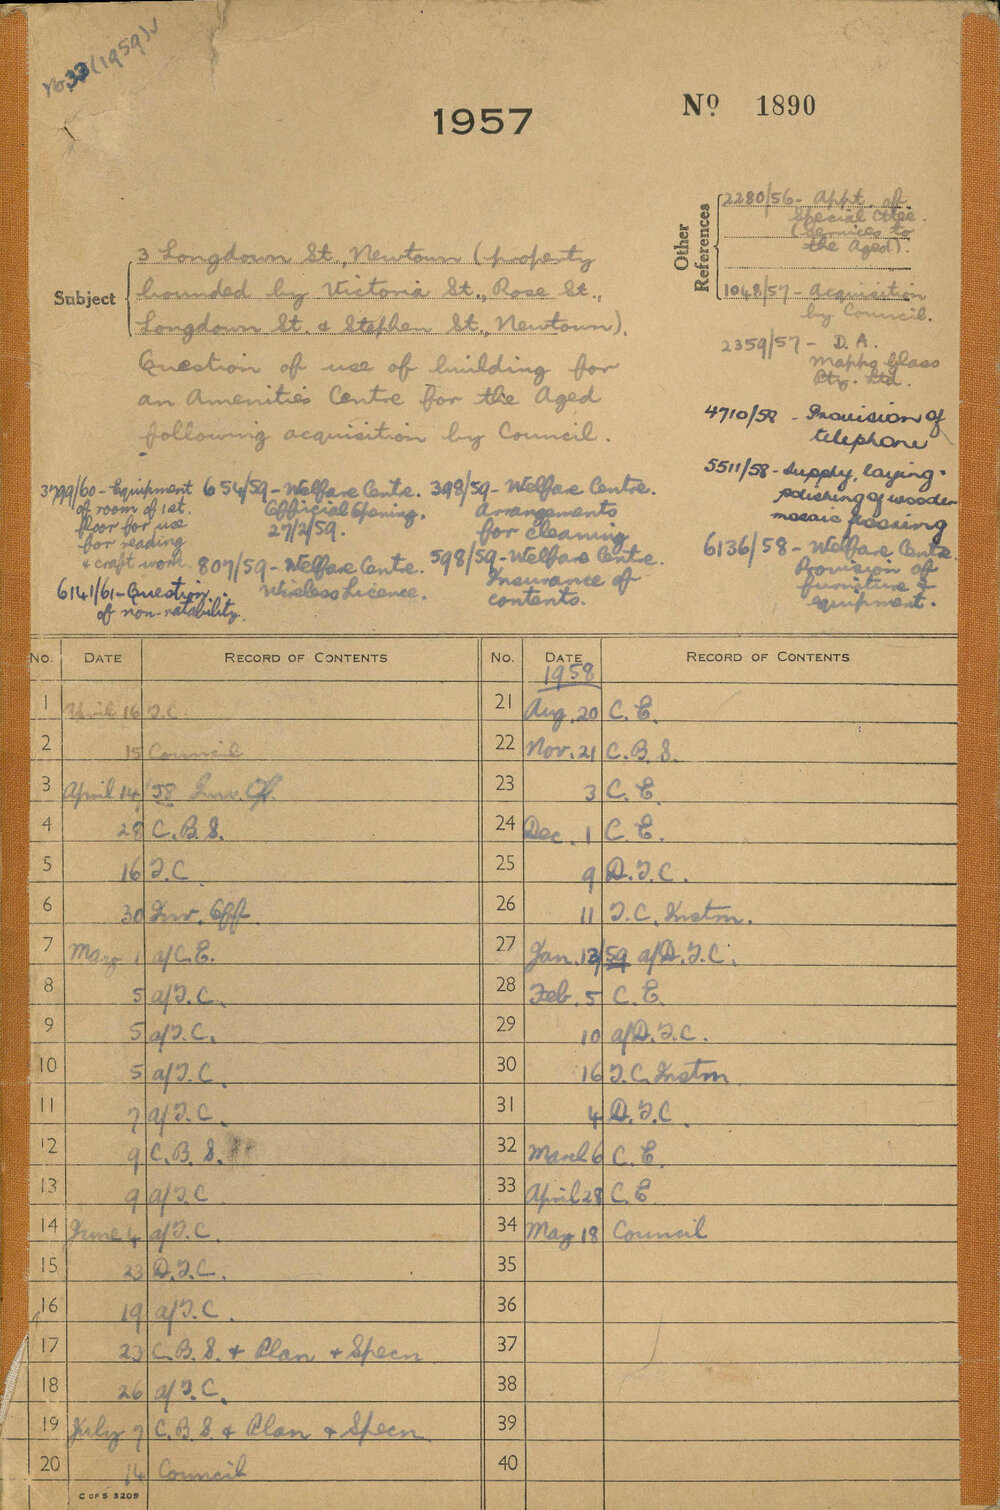 (1959)
1957
No 1890
Other References
2280/56 - Appt. of
Special Cttee.
(Services to
the Aged).
1048/57 - Acquisition
by Council.
2359/57 - D. A.
Mapps Glass
Pty. Ltd.
4710/58 - Provision of
telephone
5511/58 - Supply, laying &
polishing of wooden
mosaic flooring
6136/58 - Welfare Centre.
Provision of
furniture &
equipment.
Subject
3 Longdown St., Newtown (property
bounded by Victoria St., Rose St.,
Longdown St. & Stephen St., Newtown).
Question of use of building for
an Amenities Centre for the Aged
following acquisition by Council.
3799/60 - Equipment
of room of 1st.
floor for use
for reading
& craft work.
6141/61 - Question
of non-ratability.
654/59 - Welfare Centre.
Official Opening.
27/2/59.
807/59 - Welfare Centre.
Wireless Licence.
398/59 - Welfare Centre.
Arrangements
for cleaning
598/59 - Welfare Centre.
Insurance of
contents.
No. DATE RECORD OF CONTENTS
1 April 16 T.C.
2 15 Council
3 April 14/58 Inv. Off.
4 28 C.B.S.
5 16 T.C.
6 30 Inv. Off.
7 May 1 a/C.E.
8 5 a/T.C.
9 5 a/T.C.
10 5 a/T.C.
11 7 a/T.C.
12 9 C.B.S.
13 9 a/T.C.
14 June 4 a/T.C.
15 23 D.T.C.
16 19 a/T.C.
17 23 C.B.S. + Plan + Specn
18 26 a/T.C.
19 July 7 C.B.S. + Plan + Specn.
20 14 Council
C OF S 5209
No. DATE RECORD OF CONTENTS
1958
21 Aug. 20 C.E.
22 Nov. 21 C.B.S.
23 3 C.E.
24 Dec. 1 C.E.
25 9 D.T.C.
26 11 T.C. Instn.
27 Jan. 13/59 a/D.T.C.
28 Feb. 5 C.E.
29 10 a/D.T.C.
30 16 T.C. Instn
31 4 D.T.C.
32 March 6 C.E.
33 April 28 C.E.
34 May 18 Council
35
36
37
38
39
40